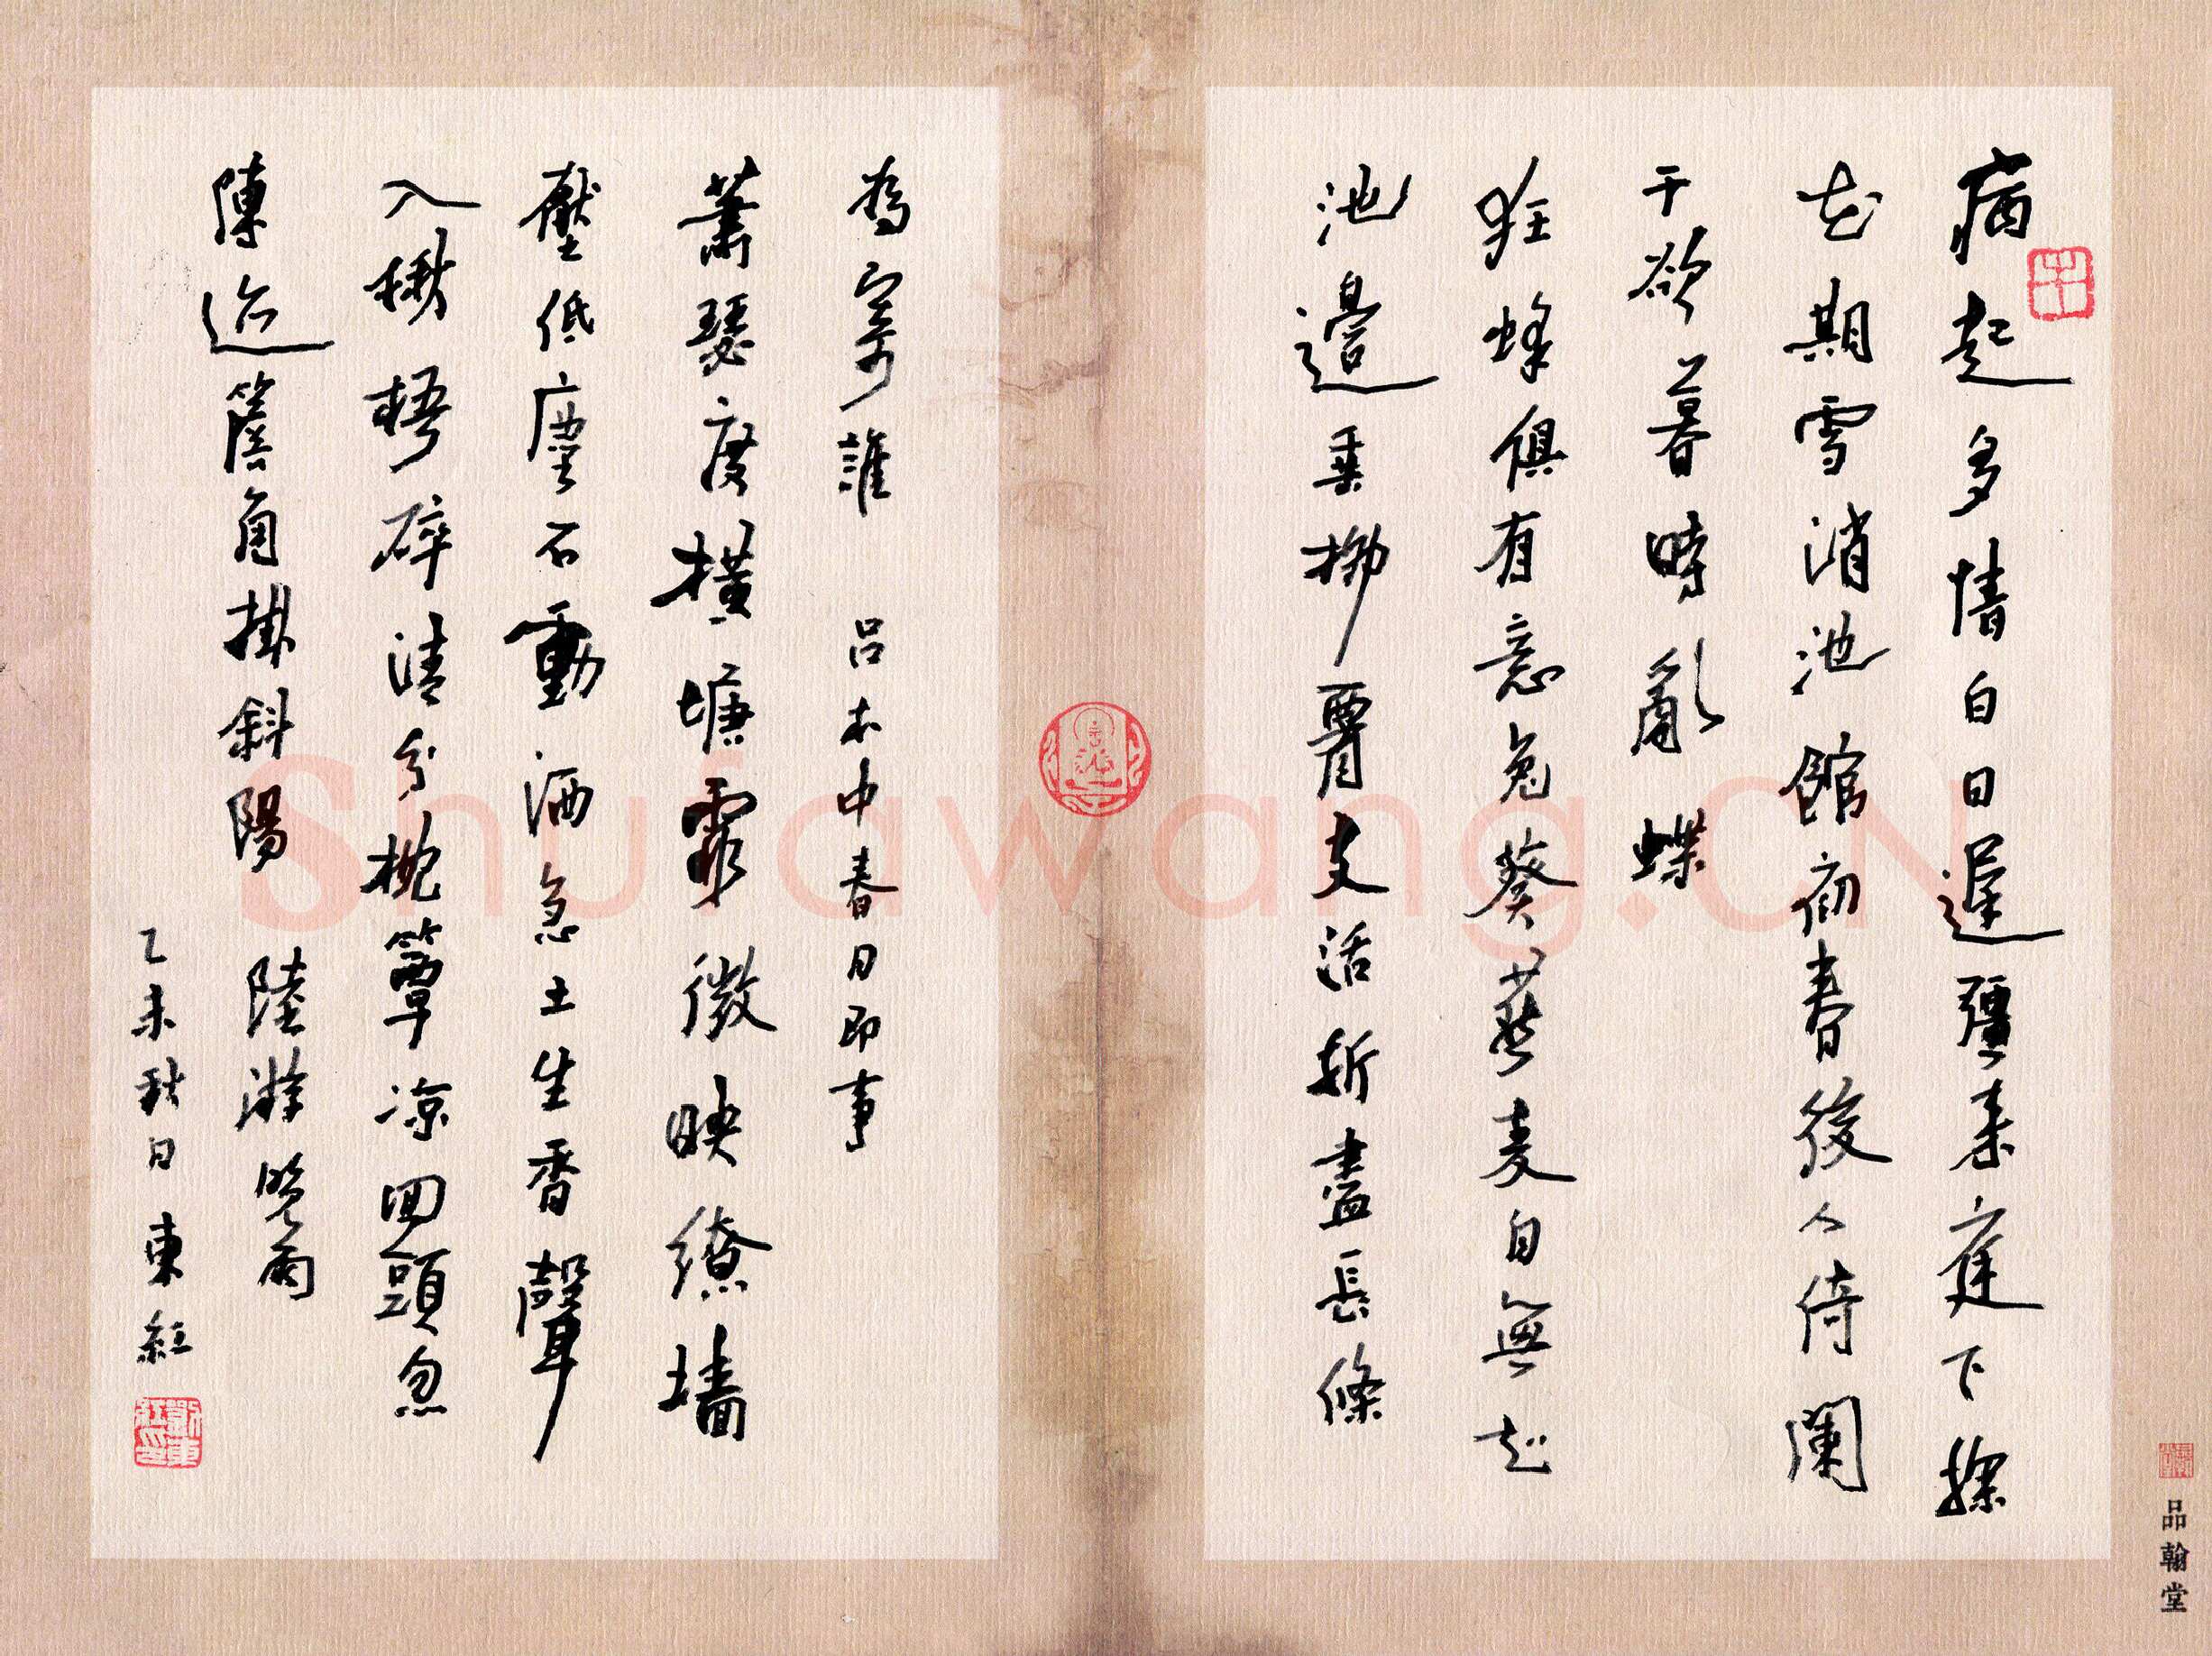 病起多情白日遲彊来庭下探
花期雪消池館初春後人倚闌
干欲暮時亂蝶
狂蜂俱有意兔葵燕麦自無知
池邊垂柳腰支活折盡長條
為寄誰 呂本中春日即事
蕭瑟度橫塘霏微映繚墙
壓低塵不動洒急土生香聲
入楸梧碎清分枕簟凉回頭忽
陳迹簷角掛斜陽 陸游晚雨
乙未秋日東紅
品翰堂
Shufawang.CN